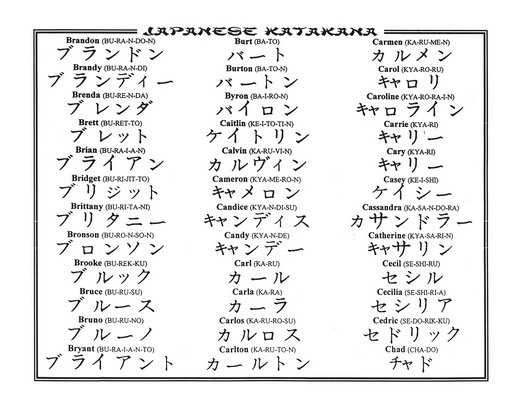 JAPANESE KATAKANA
Brandon (BU-RA-N-DO-N)
ブランドン
Brandy (BU-RA-N-DI)
ブランディー
Brenda (BU-RE-N-DA)
ブレンダ
Brett (BU-RET-TO)
ブレット
Brian (BU-RA-I-A-N)
ブライアン
Bridget (BU-RI-JIT-TO)
ブリジット
Brittany (BU-RI-TA-NI)
ブリタニー
Bronson (BU-RO-N-SO-N)
ブロンソン
Brooke (BU-REK-KU)
ブルック
Bruce (BU-RU-SU)
ブルース
Bruno (BU-RU-NO)
ブルーノ
Bryant (BU-RA-I-A-N-TO)
ブライアント
Burt (BA-TO)
バート
Burton (BA-TO-N)
バートン
Byron (BA-I-RO-N)
バイロン
Caitlin (KE-I-TO-TI-N)
ケイトリン
Calvin (KA-RU-VI-N)
カルヴィン
Cameron (KYA-ME-RO-N)
キャメロン
Candice (KYA-N-DI-SU)
キャンディス
Candy (KYA-N-DE)
キャンデー
Carl (KA-RU)
カール
Carla (KA-RA)
カーラ
Carlos (KA-RU-RO-SU)
カルロス
Carlton (KA-RU-TO-N)
カールトン
Carmen (KA-RU-ME-N)
カルメン
Carol (KYA-RO-RU)
キャロリ
Caroline (KYA-RO-RA-I-N)
キャロライン
Carrie (KYA-RI)
キャリー
Cary (KYA-RI)
キャリー
Casey (KE-I-SHI)
ケイシー
Cassandra (KA-SA-N-DO-RA)
カサンドラー
Catherine (KYA-SA-RI-N)
キャサリン
Cecil (SE-SHI-RU)
セシル
Cecilia (SE-SHI-RI-A)
セシリア
Cedric (SE-DO-RIK-KU)
セドリック
Chad (CHA-DO)
チャド